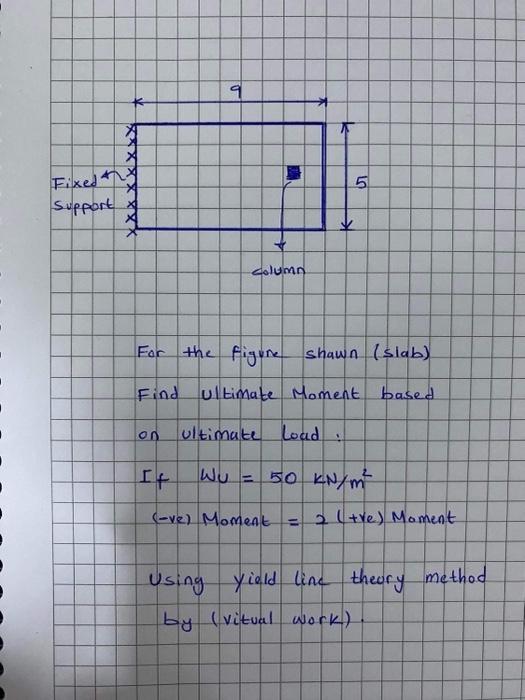 9
Fixed
Support
5
column
For the figure shawn (slab)
Find ultimate Moment based
on ultimate Load :
If Wu = 50 KN/m²
(-ve) Moment = 2 (+ve) Moment
Using yield line theory method
by (vitual work).